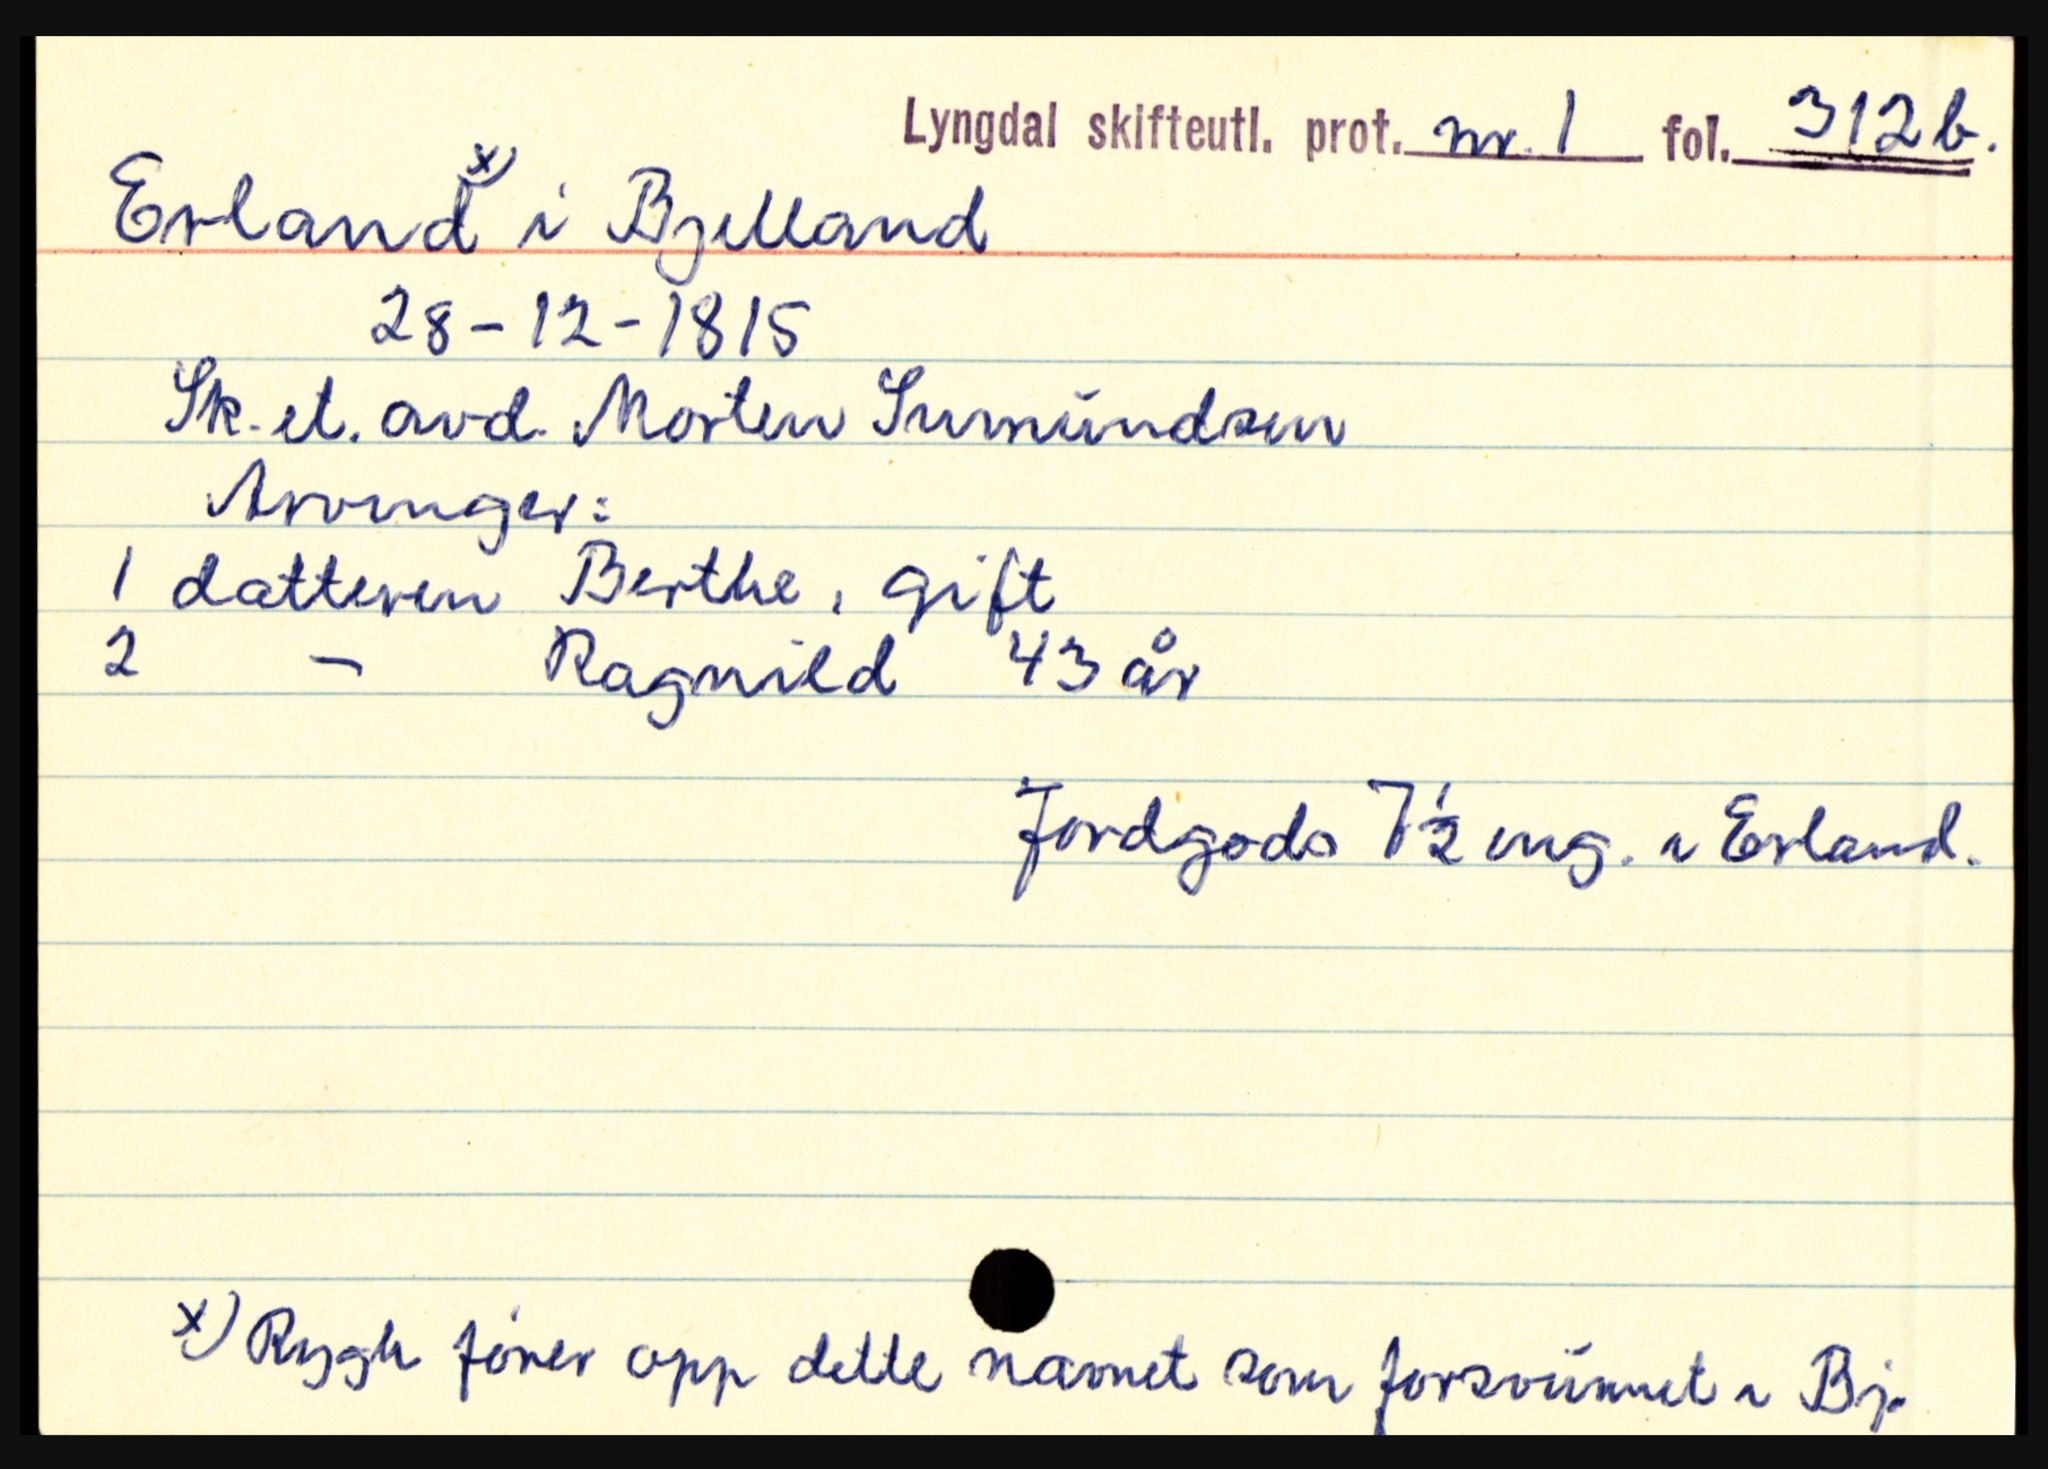 Lyngdal skifteutl. prot. nr. 1 fol. 312b.
Erland x) i Bjelland
28-12-1815
Sk. et. avd. Morten Surmundsen
Arvinger:
1 datteren Berthe, gift
2 - Ragnild 43 år
Jordgods 7½ eng. i Erland.
x) Rygh fører opp dette navnet som forsvunnet i Bj.